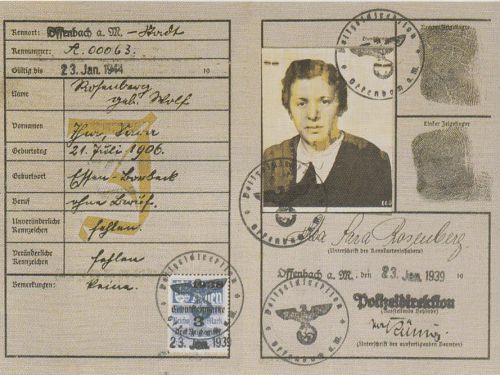 Kennort: Offenbach a. M. – Stadt
Kennummer: A.00063.
Gültig bis 23. Jan. 1944 19
Name Rosenberg
geb. Wolf
Vornamen Sara
Geburtstag 21. Juli 1906.
Geburtsort Essen-Borbeck
Beruf ohne Beruf.
Unveränderliche Kennzeichen fehlen.
Veränderliche Kennzeichen fehlen
Bemerkungen: keine.
J
Polizeidirektion
3
23. Jan. 1939
Polizeidirektion
Offenbach a.M.
Rechter Zeigefinger
Linker Zeigefinger
Polizeidirektion
Offenbach a.M.
Sara Rosenberg
(Unterschrift des Kennkarteninhabers)
Offenbach a. M., den 23. Jan. 1939 19
Polizeidirektion
(Ausstellende Behörde)
Polizeidirektion
Offenbach a.M.
(Unterschrift des ausfertigenden Beamten)